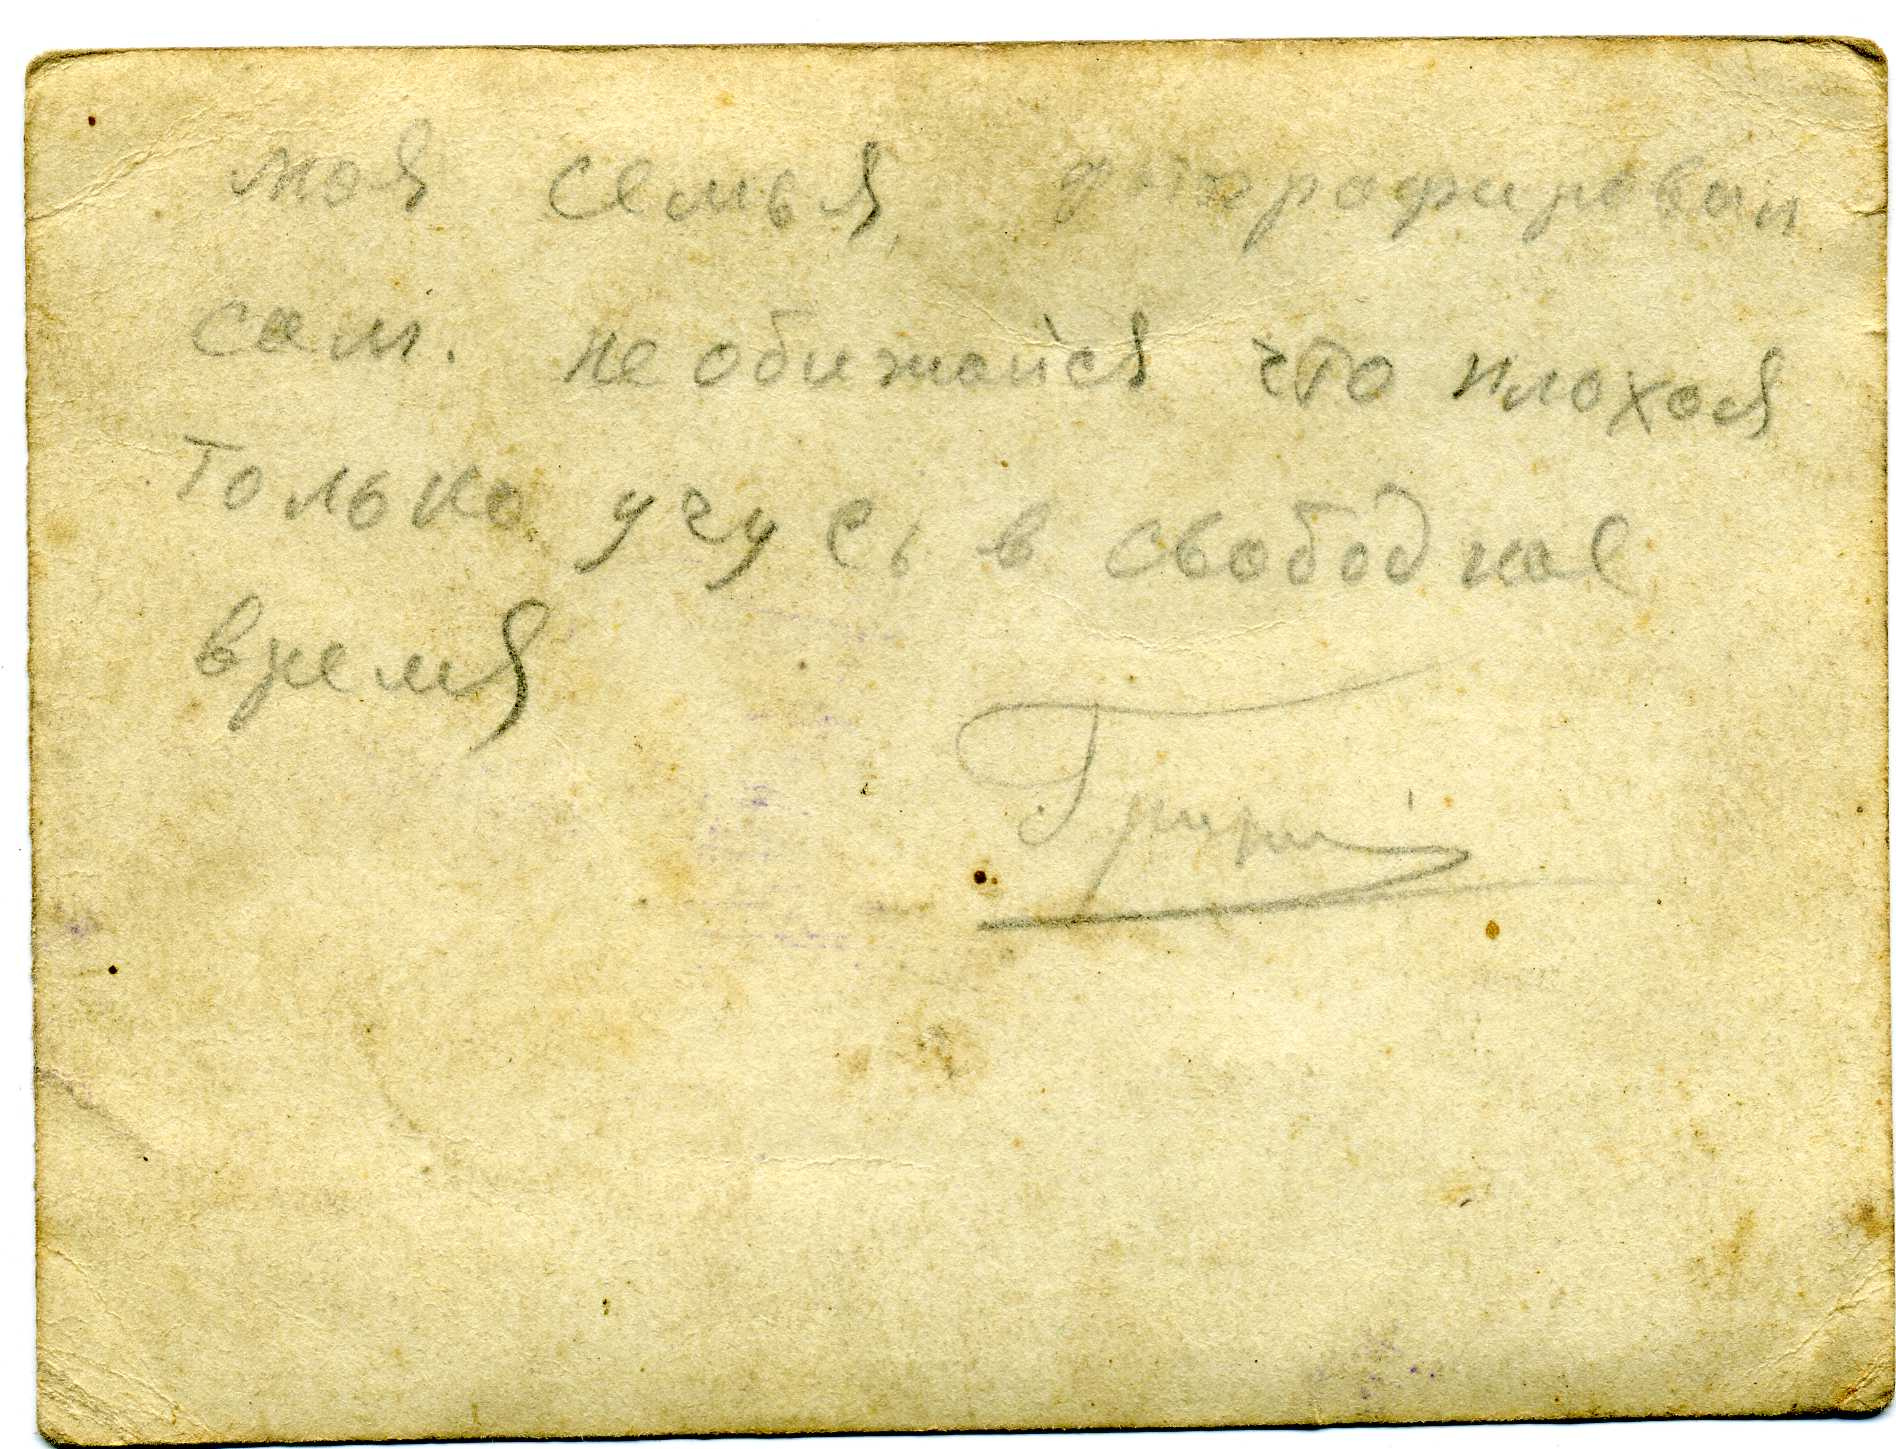 моя семья, фотографировал
сам. не обижайся что плохая
только учусь в свободное
время